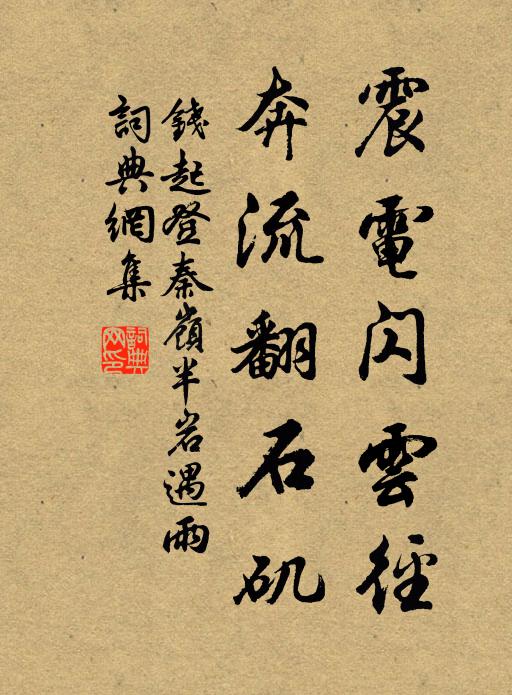 震電閃雲徑
奔流翻石矶
錢起登秦嶺半岩遇雨
詞典網集
詞典网印